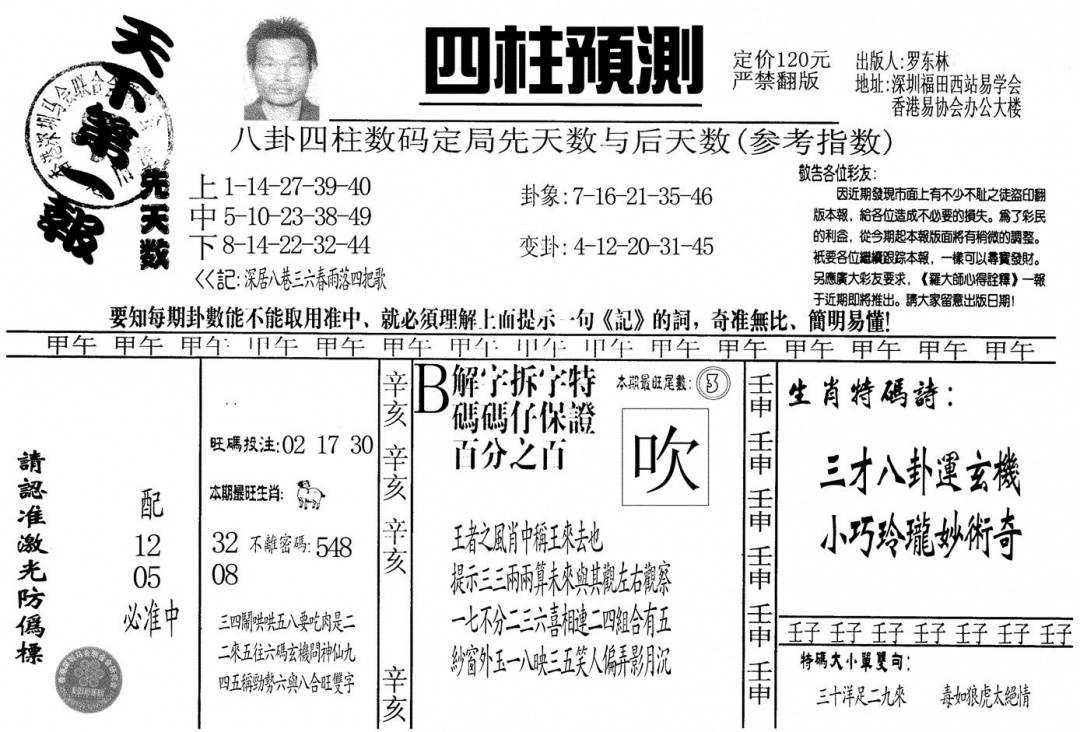 天下第一報
先天数
四柱預測
定价120元
严禁翻版
出版人:罗东林
地址:深圳福田西站易学会
香港易协会办公大楼
八卦四柱数码定局先天数与后天数(参考指数)
上 1-14-27-39-40
中 5-10-23-38-49
下 8-14-22-32-44
<<記:深居八巷三六春雨落四把歌
卦象:7-16-21-35-46
变卦:4-12-20-31-45
敬告各位彩友:
因近期發現市面上有不少不耻之徒盜印翻
版本報,給各位造成不必要的損失。爲了彩民
的利益,從今期起本報版面將有稍微的調整。
祇要各位繼續跟踪本報,一樣可以尋寶發財。
另應廣大彩友要求,《羅大師心得詮釋》一報
于近期即將推出。請大家留意出版日期!
要知每期卦數能不能取用准中、就必須理解上面提示一句《記》的詞,奇准無比、簡明易懂!
甲午 甲午 甲午 甲午 甲午 甲午 甲午 甲午 甲午 甲午 甲午 甲午 甲午 甲午 甲午
請認准激光防僞標
配
12
05
必准中
旺碼投注:02 17 30
本期最旺生肖:
32 不離密碼:548
08
三四鬧哄哄五八要吃肉是二
二來五往六碼玄機問神仙九
四五稱勁勢六與八合旺雙字
辛亥
辛亥
辛亥
辛亥
B解字拆字特
碼碼仔保證
百分之百
本期最旺尾數:3
吹
王者之風肖中稱王來去也
提示三三兩兩算未來與其觀左右觀察
一七不分二三六喜相連二四組合有五
紗窗外玉一八映三五笑人偏弄影月沉
壬申
壬申
壬申
壬申
壬申
壬申
生肖特碼詩:
三才八卦運玄機
小巧玲瓏妙術奇
壬子 壬子 壬子 壬子 壬子 壬子 壬子
特碼大小單雙句:
三十洋足二九來 毒如狼虎太絕情